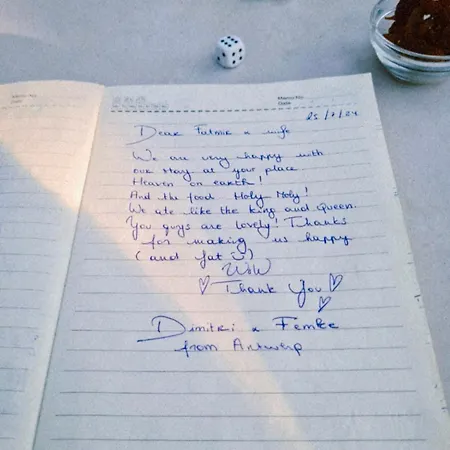 Memo No.
Date
Memo No.
Date
25/7/24
Dear Fatmir & wife
We are very happy with
our stay at your place
Heaven on earth!
And the food Holy Moly!
We ate like the king and Queen.
You guys are lovely! Thanks
for making us happy
(and fat ☺)
WoW
♡ Thank You ♡
♡
Dimitri & Femke
from Antwerp